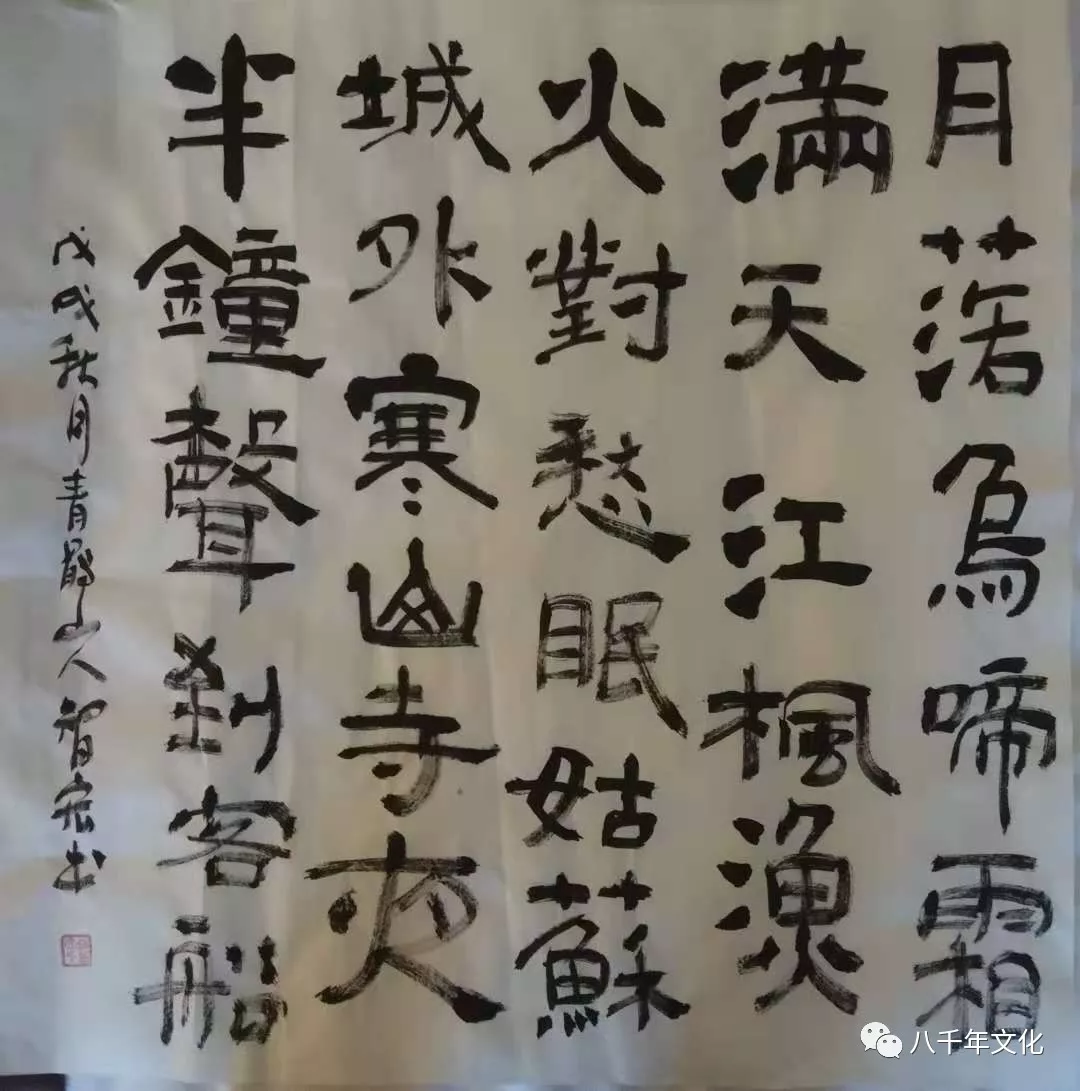 月落烏啼霜
滿天江楓漁
火對愁眠姑蘇
城外寒山寺夜
半鐘聲到客船
戊戌秋月青山人智宏书
八千年文化